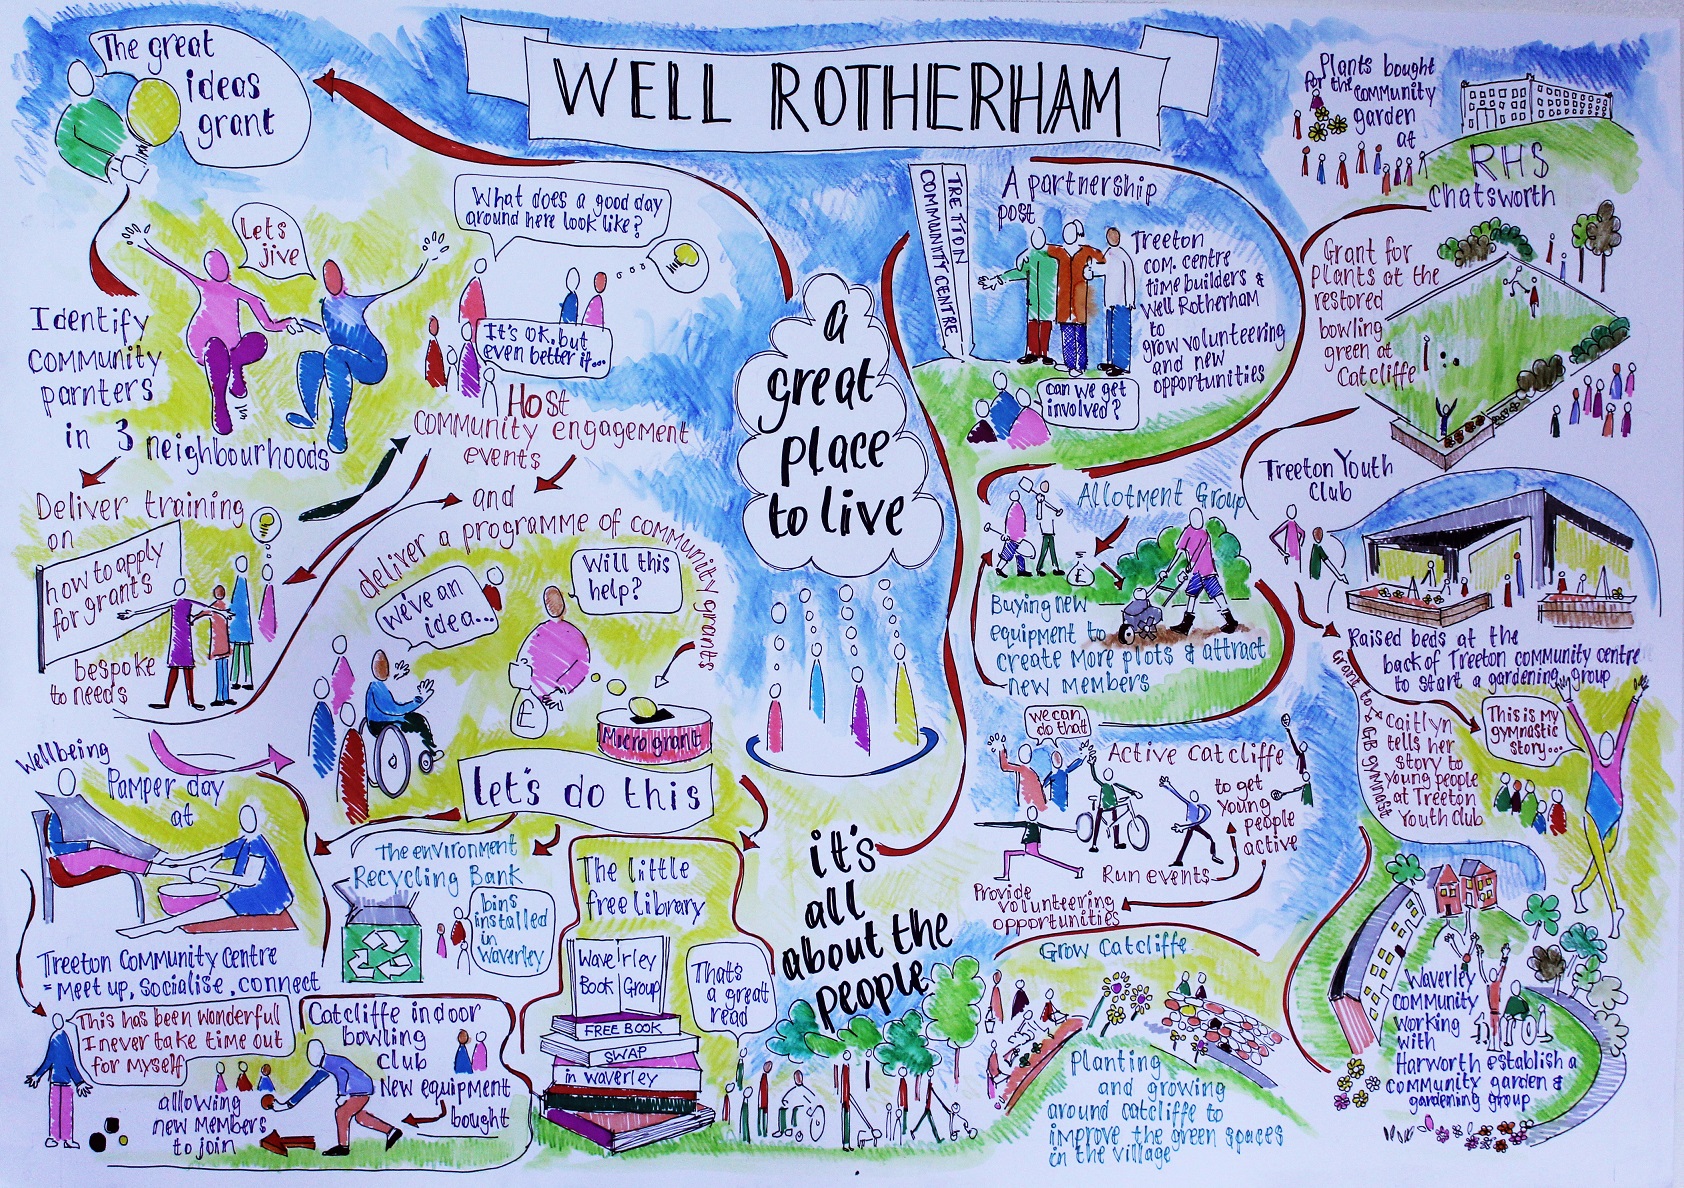 WELL ROTHERHAM
The great
ideas
grant
Lets
jive
Identify
community
parnters
in 3 neighbourhoods
What does a good day
around here look like?
It's OK, but
even better if...
Host
community engagement
events
and
deliver a programme of community grants
Deliver training
on
how to apply
for grants
bespoke
to needs
we've an
idea...
Will this
help?
£
Micro grant
let's do this
Wellbeing
Pamper day
at
Treeton Community Centre
= meet up, socialise, connect
This has been wonderful
I never take time out
for myself
The environment
Recycling Bank
bins
installed
in
Waverley
Catcliffe indoor
bowling
club
New equipment
bought
allowing
new members
to join
The little
free library
Wave'rley
Book Group
FREE BOOK
SWAP
in waverley
That's
a great
read
a
great
place
to live
it's
all
about the
people
TRETTON
COMMUNITY CENTRE
A partnership
post
Treeton
com. centre
time builders &
Well Rotherham
to
grow volunteering
and new
opportunities
can we get
involved?
Allotment Group
£
Buying new
equipment to
create more plots & attract
new members
we can
do that
Active Catcliffe
to get
young
people
active
Run events
Provide
volunteering
opportunities
Grow Catcliffe
Planting
and growing
around catcliffe to
improve the green spaces
in the village
Plants bought
for the community
garden
at
RHS
Chatsworth
Grant for
plants at the
restored
bowling
green at
Catcliffe
Treeton Youth
Club
Raised beds at the
back of Treeton community centre
to start a gardening group
Grant to GB gymnast
Caitlyn
tells her
story to
young people
at Treeton
Youth club
This is my
gymnastic
story...
Waverley
community
working
with
Harworth establish a
community garden &
gardening group